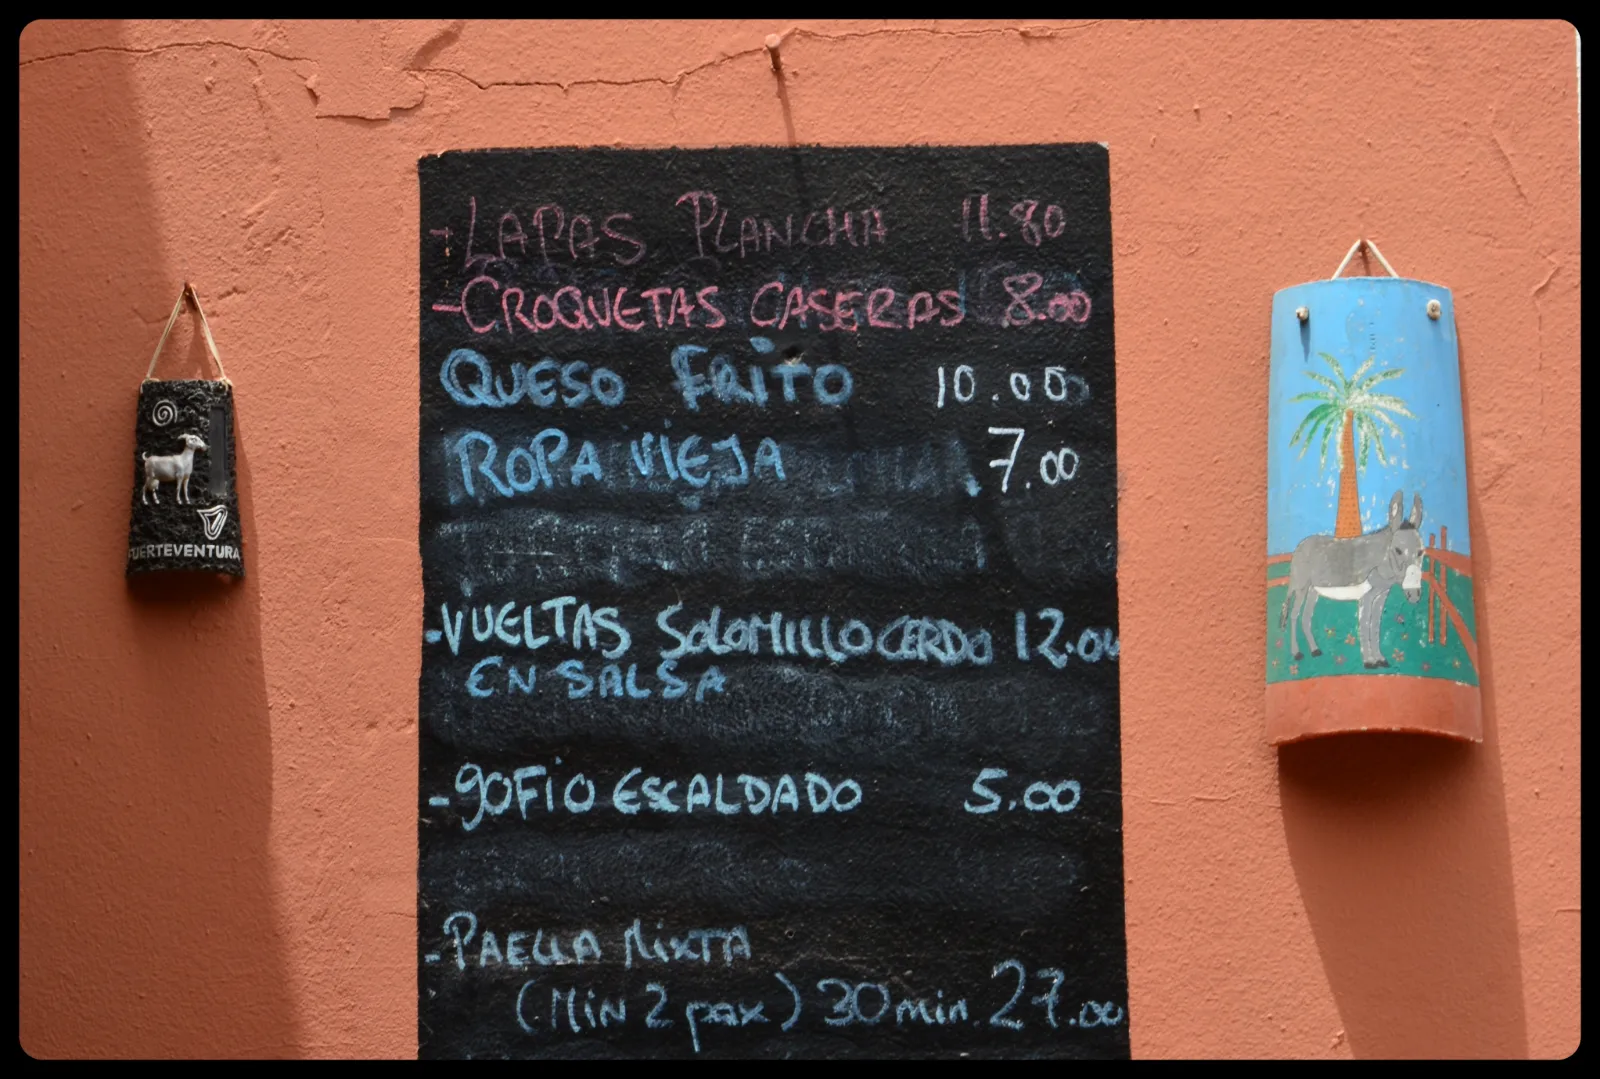 - LAPAS PLANCHA 11.80
- CROQUETAS CASERAS 8.00
QUESO FRITO 10.00
ROPA VIEJA 7.00
- VUELTAS SOLOMILLO CERDO 12.00
EN SALSA
- gOFIO ESCALDADO 5.00
- PAELLA MIXTA
(MIN 2 pax) 30 min. 27.00
FUERTEVENTURA